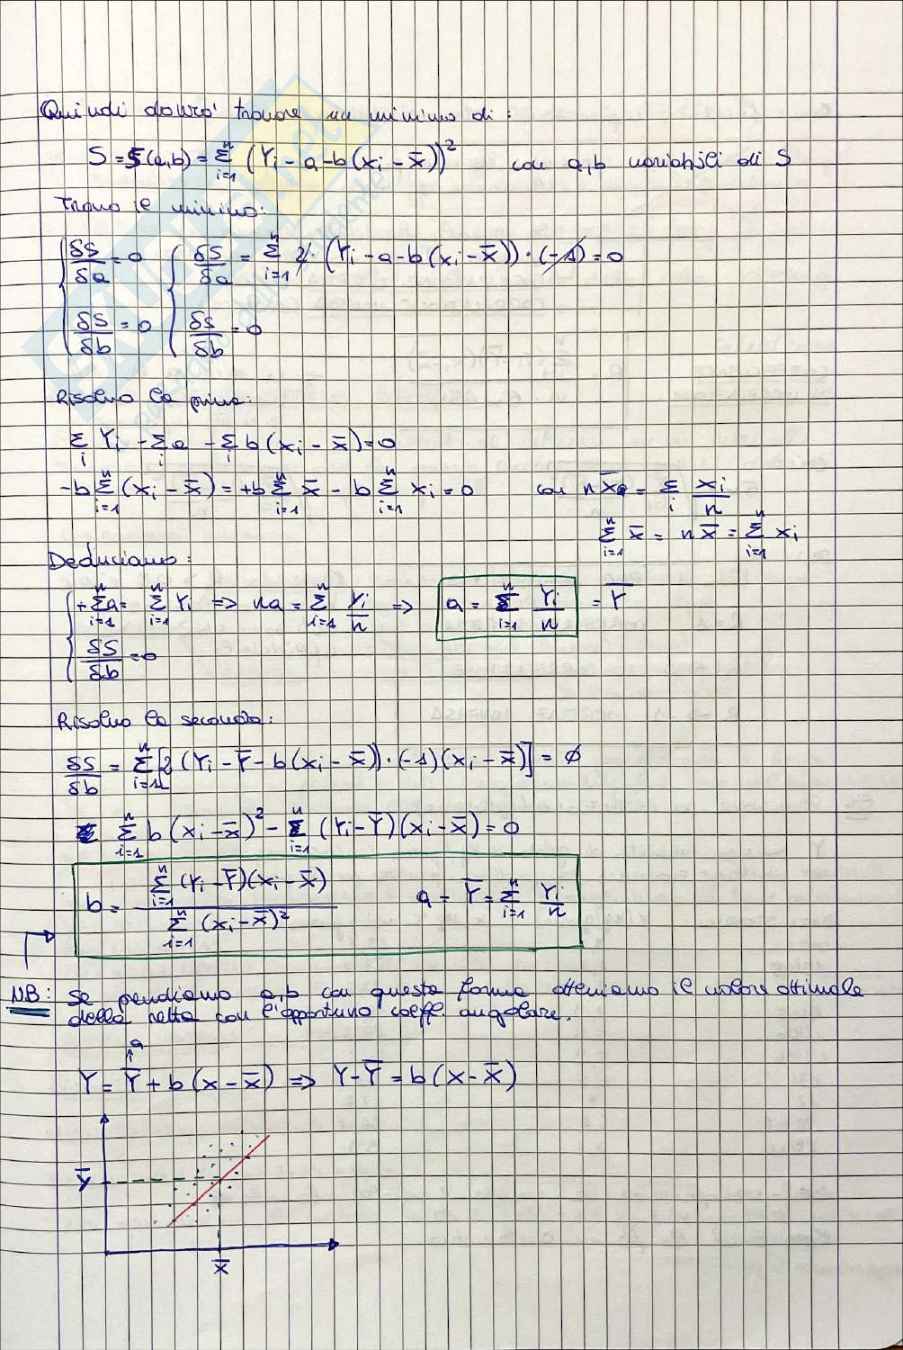 Quindi dovrò trovare un minimo di:
S = S(a,b) = Σ_{i=1}^{n} (Yi - a - b(xi - x̄))² con a,b variabili di S
Trovo il minimo:
{ δS/δa = 0 { δS/δa = Σ_{i=1}^{n} 2·(Yi - a - b(xi - x̄))·(-1) = 0
δS/δb = 0 δS/δb = 0
Risolvo la prima:
Σ_i Yi - Σ_i a - Σ_i b(xi - x̄) = 0
-b Σ_{i=1}^{n} (xi - x̄) = +b Σ_{i=1}^{n} x̄ - b Σ_{i=1}^{n} xi = 0 con n x̄ = Σ_i xi/n
Σ_{i=1}^{n} x̄ = n x̄ = Σ_{i=1}^{n} xi
Deduciamo:
{ +Σ_{i=1}^{n} a = Σ_{i=1}^{n} Yi => na = Σ_{i=1}^{n} Yi/n => a = Σ_{i=1}^{n} Yi/n = Ȳ
δS/δb = 0
Risolvo la seconda:
δS/δb = Σ_{i=1}^{n} [2(Yi - Ȳ - b(xi - x̄))·(-1)(xi - x̄)] = 0
Σ_{i=1}^{n} b(xi - x̄)² - Σ_{i=1}^{n} (Yi - Ȳ)(xi - x̄) = 0
b = Σ_{i=1}^{n} (Yi - Ȳ)(xi - x̄) / Σ_{i=1}^{n} (xi - x̄)² a = Ȳ = Σ_{i=1}^{n} Yi/n
NB: Se prendiamo a,b con questa forma otteniamo il valore ottimale
della retta con l'opportuno coeff. angolare.
a
Y = Ȳ + b(x - x̄) => Y - Ȳ = b(x - x̄)
Ȳ
x̄